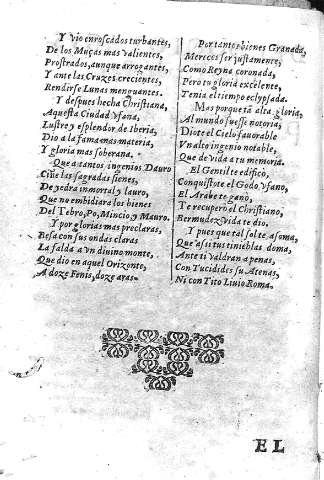 Y vio enroscados turbantes,
De los Muças mas valientes,
Prostrados, aunque arrogantes,
Y ante las Cruzes crecientes,
Rendirse Lunas menguantes.
Y despues hecha Christiana,
Aquesta Ciudad vfana,
Lustre y esplendor de Iberia,
Dio a la fama mas materia,
Y gloria mas soberana.
Que a tantos ingenios Dauro
Ciñe las sagradas sienes,
De yedra inmortal y lauro,
Que no embidiara los bienes
Del Tebro, Po, Mincio, y Mauro.
Y por glorias mas preclaras,
Besa con sus ondas claras
La falda a vn diuino monte,
Que dio en aquel Orizonte,
A doze Fenis, doze aras.
Por tanto bienes Granada,
Mereces ser justamente,
Como Reyna coronada,
Pero tu gloria excelente,
Tenia el tiempo eclypsada.
Mas porque tã alta gloria,
Al mundo fuesse notoria,
Diote el Cielo fauorable
Vn alto ingenio notable,
Que de vida a tu memoria.
El Gentil te edificò,
Conquistote el Godo vfano,
El Arabe te ganò,
Te recuperò el Christiano,
Bermudez vida te dio,
Y pues que tal sol te asoma,
Que assi tus tinieblas doma,
Ante ti valdran apenas,
Con Tucidides su Atenas,
Ni con Tito Liuio Roma.
EL